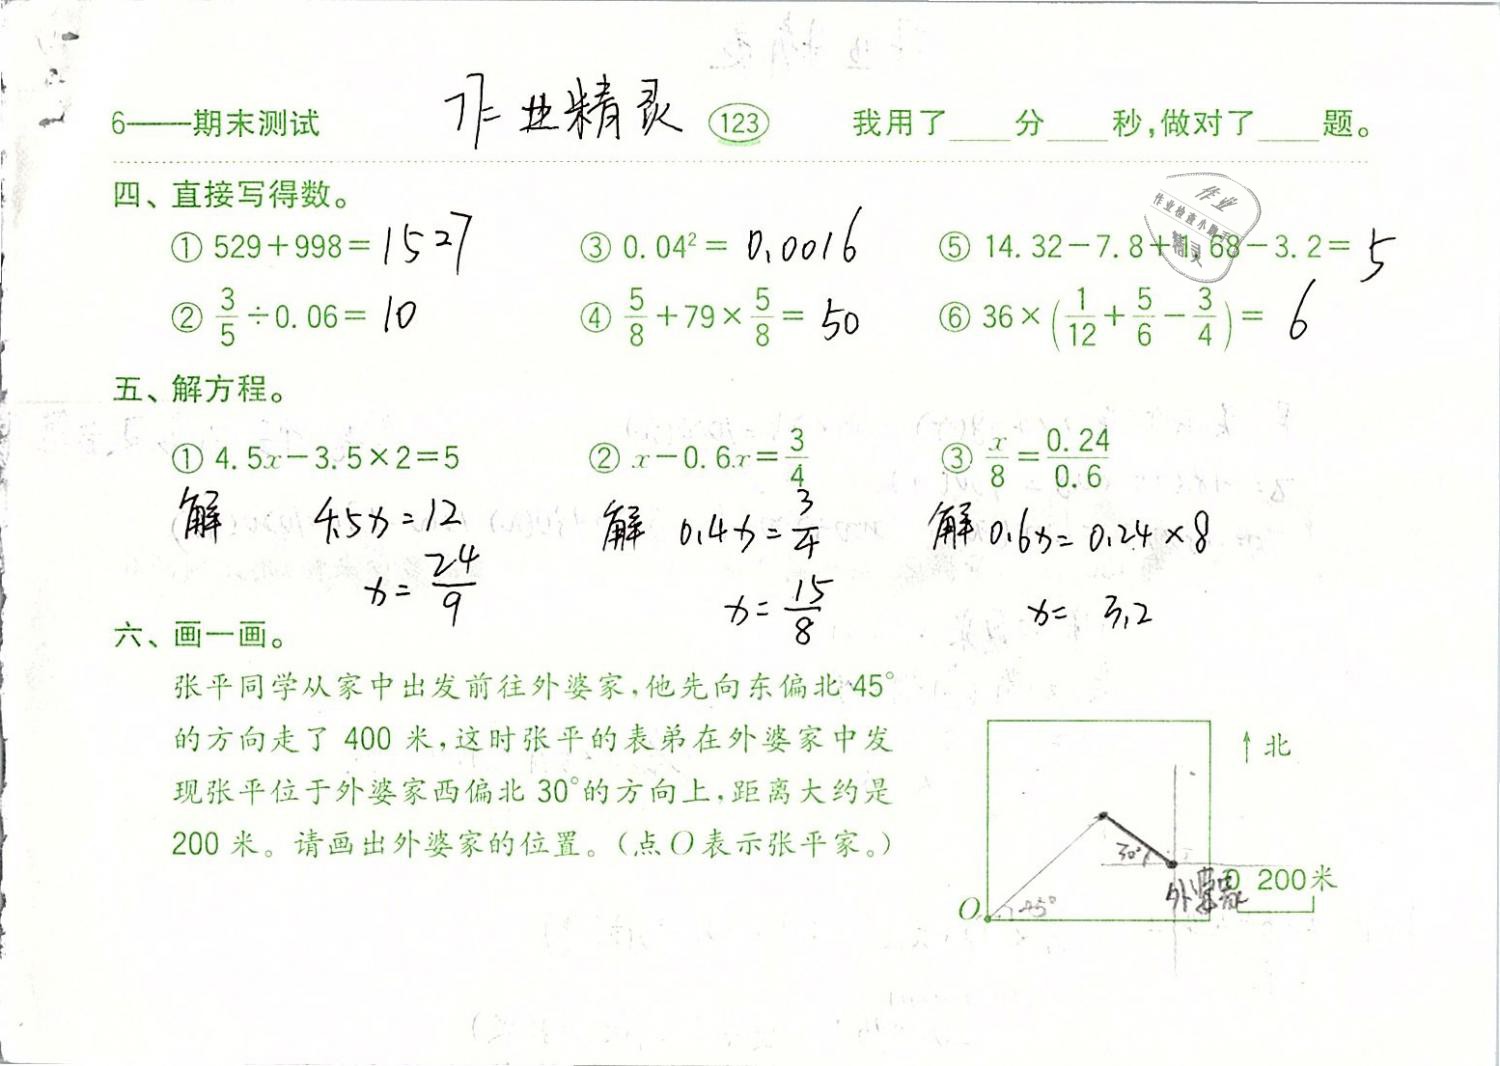 6——期末测试 作业精灵 123 我用了____分____秒,做对了____题。
作业
作业检查小助手
精灵
四、直接写得数。
① 529+998= 1527 ③ 0.04²= 0.0016 ⑤ 14.32-7.8+1.68-3.2= 5
② 3/5÷0.06= 10 ④ 5/8+79×5/8= 50 ⑥ 36×(1/12+5/6-3/4)= 6
五、解方程。
① 4.5x-3.5×2=5 ② x-0.6x=3/4 ③ x/8=0.24/0.6
解 4.5x=12 解 0.4x=3/4 解 0.6x=0.24×8
x=24/9 x=15/8 x=3.2
六、画一画。
张平同学从家中出发前往外婆家,他先向东偏北45°
的方向走了 400 米,这时张平的表弟在外婆家中发
现张平位于外婆家西偏北 30°的方向上,距离大约是
200 米。请画出外婆家的位置。(点O表示张平家。)
北
30°
外婆家
0 200米
O 45°